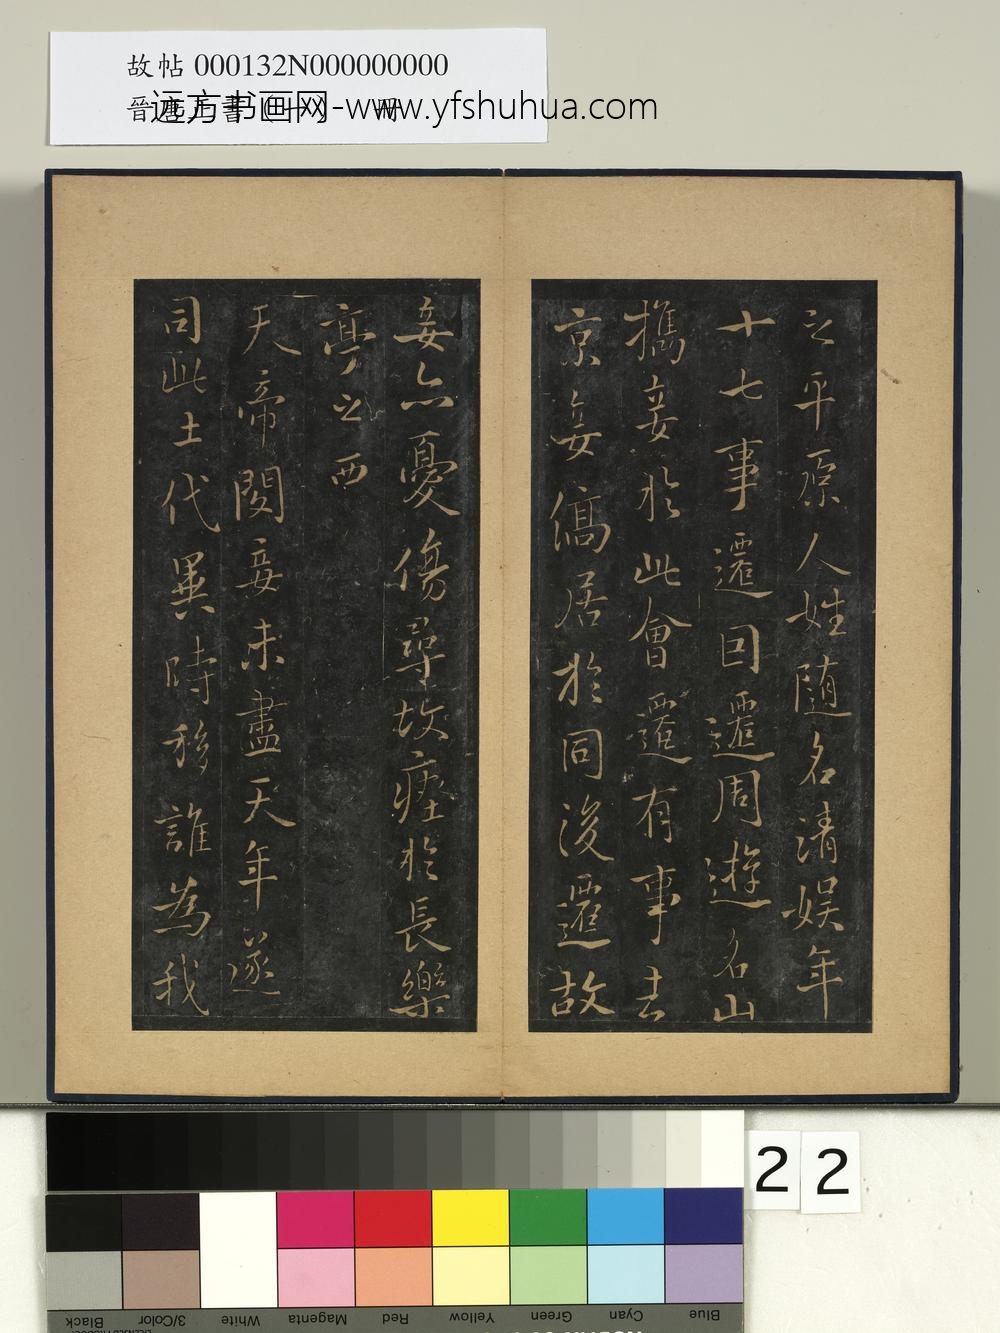 故帖 000132N000000000
远方书画网-www.yfshuhua.com
之平原人姓随名清娱年
十七事遷因遷周遊名山
攜妾於此會遷有事去
京妾僑居於同後遷故
妾亦憂傷尋故瘞於長樂
亭之西
天帝閔妾未盡天年遂
司此土代異時移誰為我
22
Black
3/Color
White
Magenta
Red
Yellow
Green
Cyan
Blue